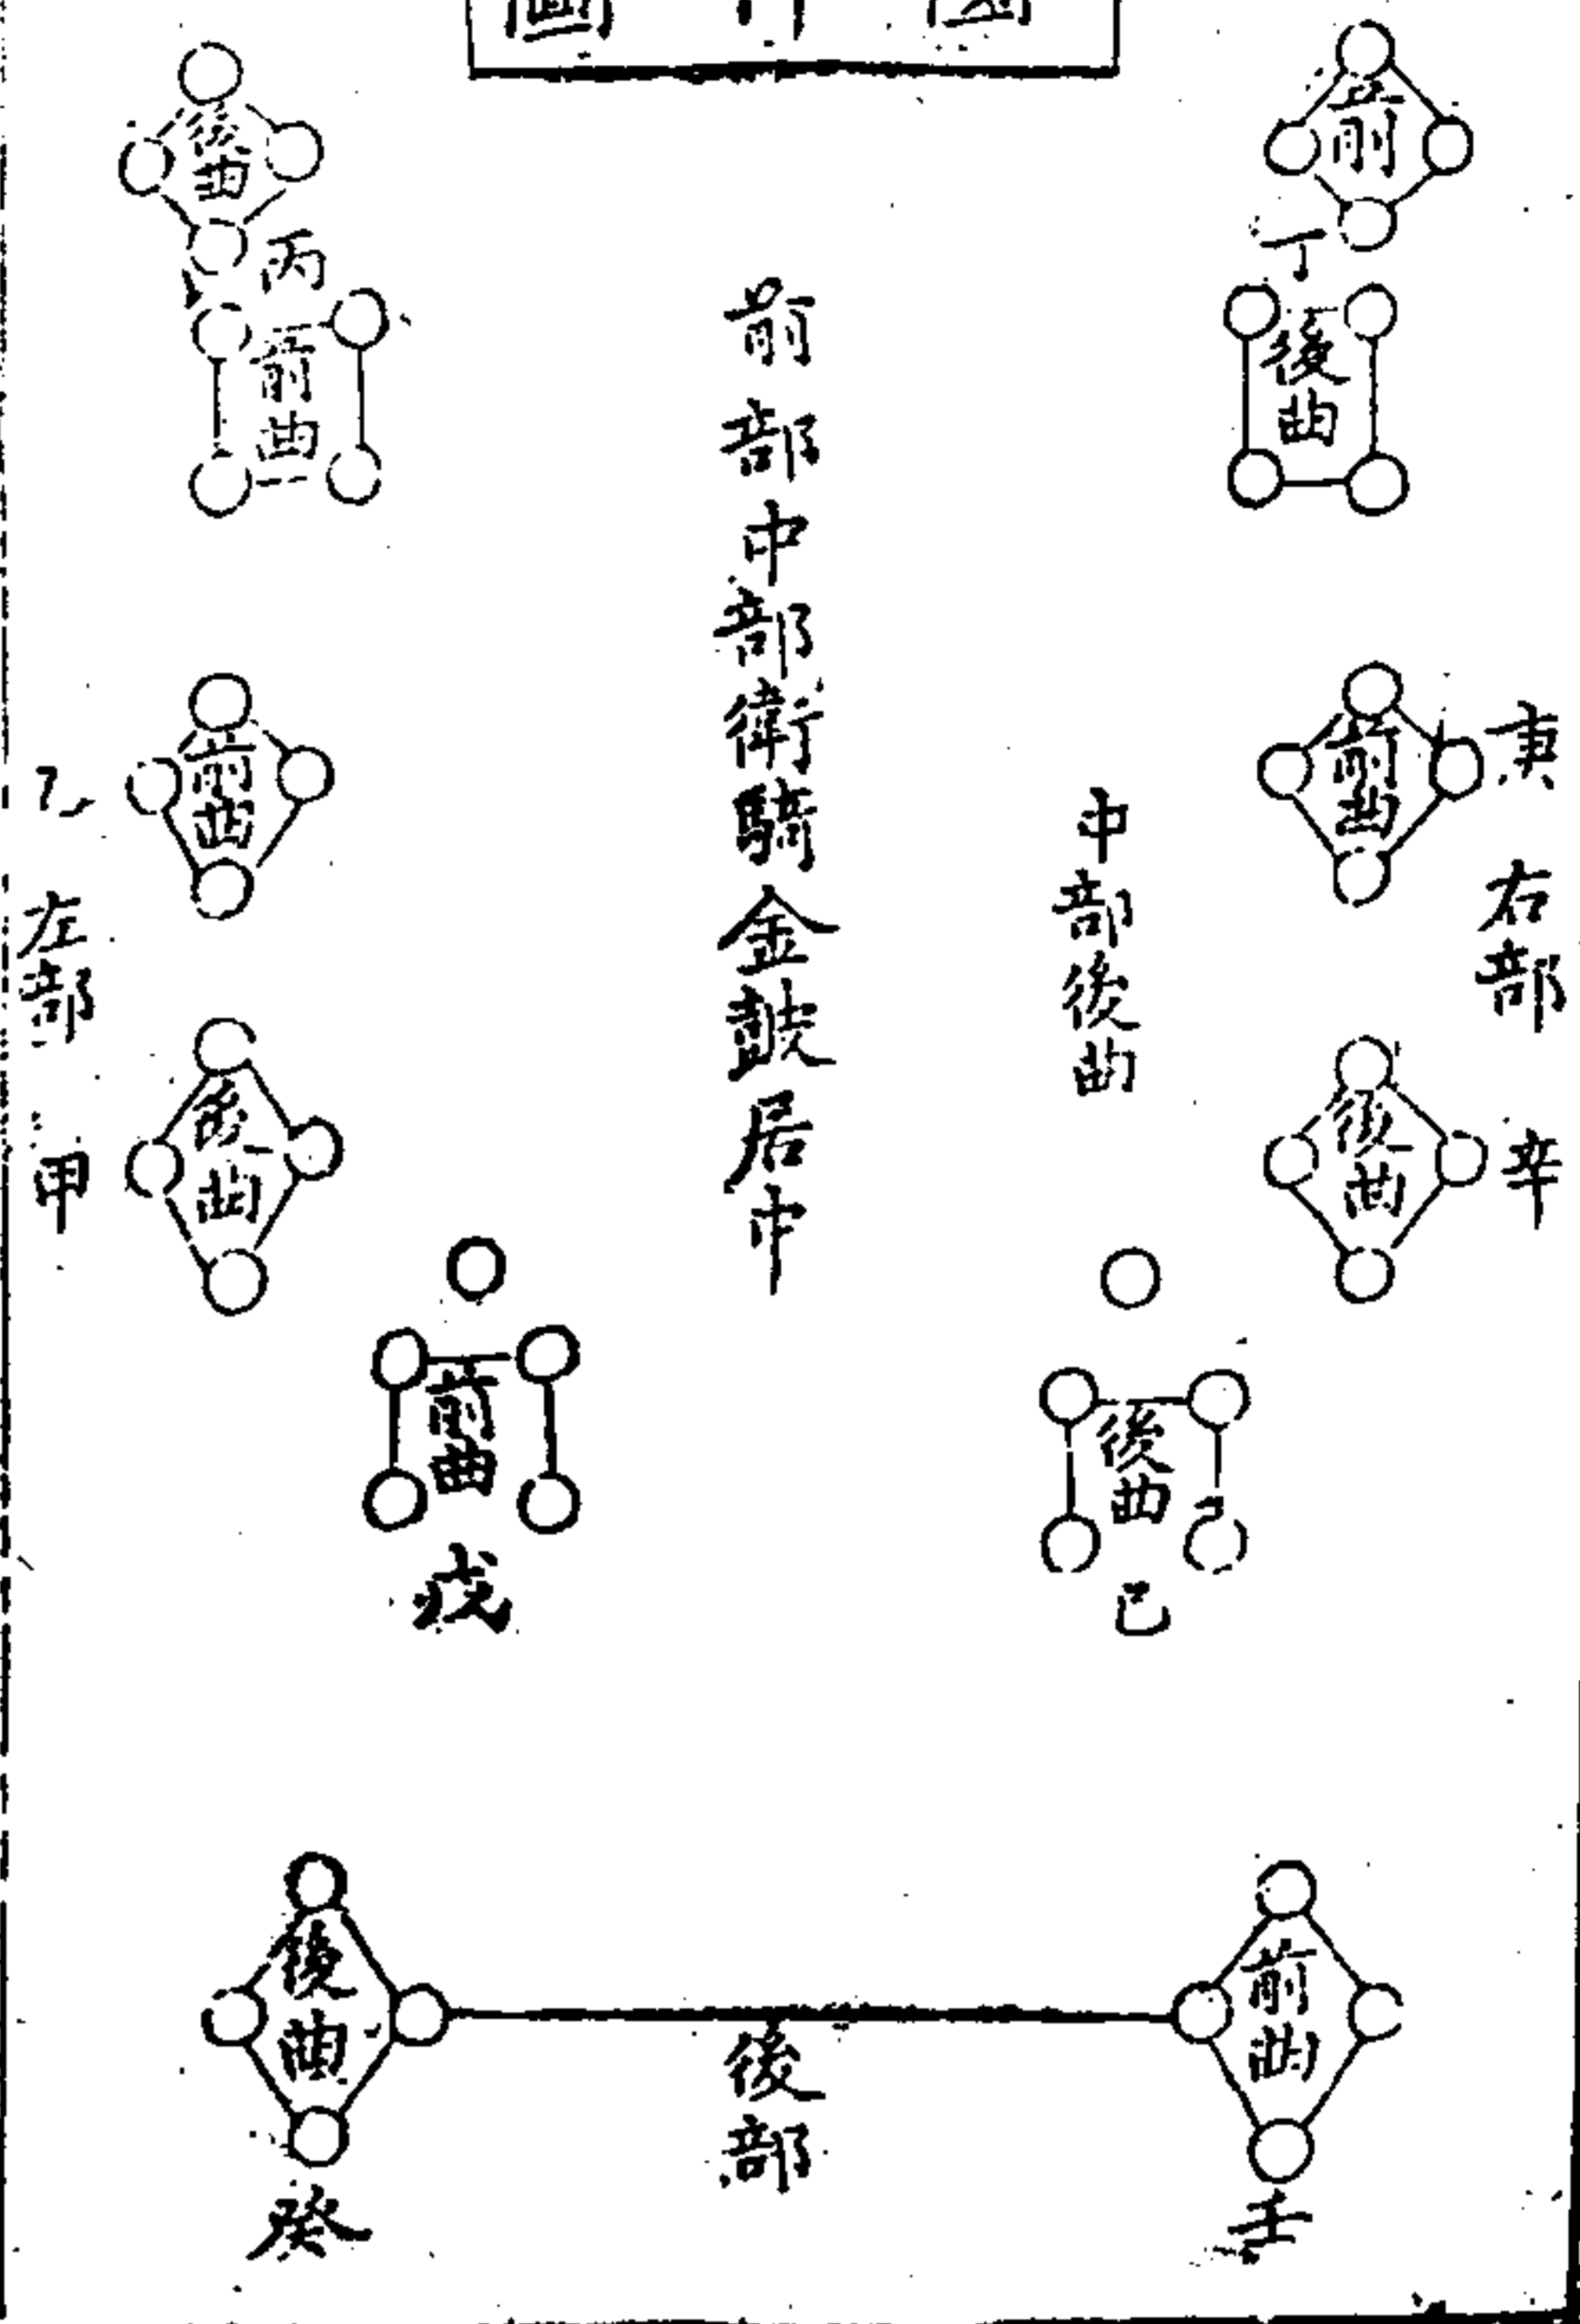 前
丁
後曲
庚
前曲
右部
後曲
辛
中部後曲
後曲
己
前部中部衛騎金鼓居中
後曲
丙
前曲
乙
前曲
左部
後曲
甲
前曲
戊
前曲
壬
後部
後曲
癸